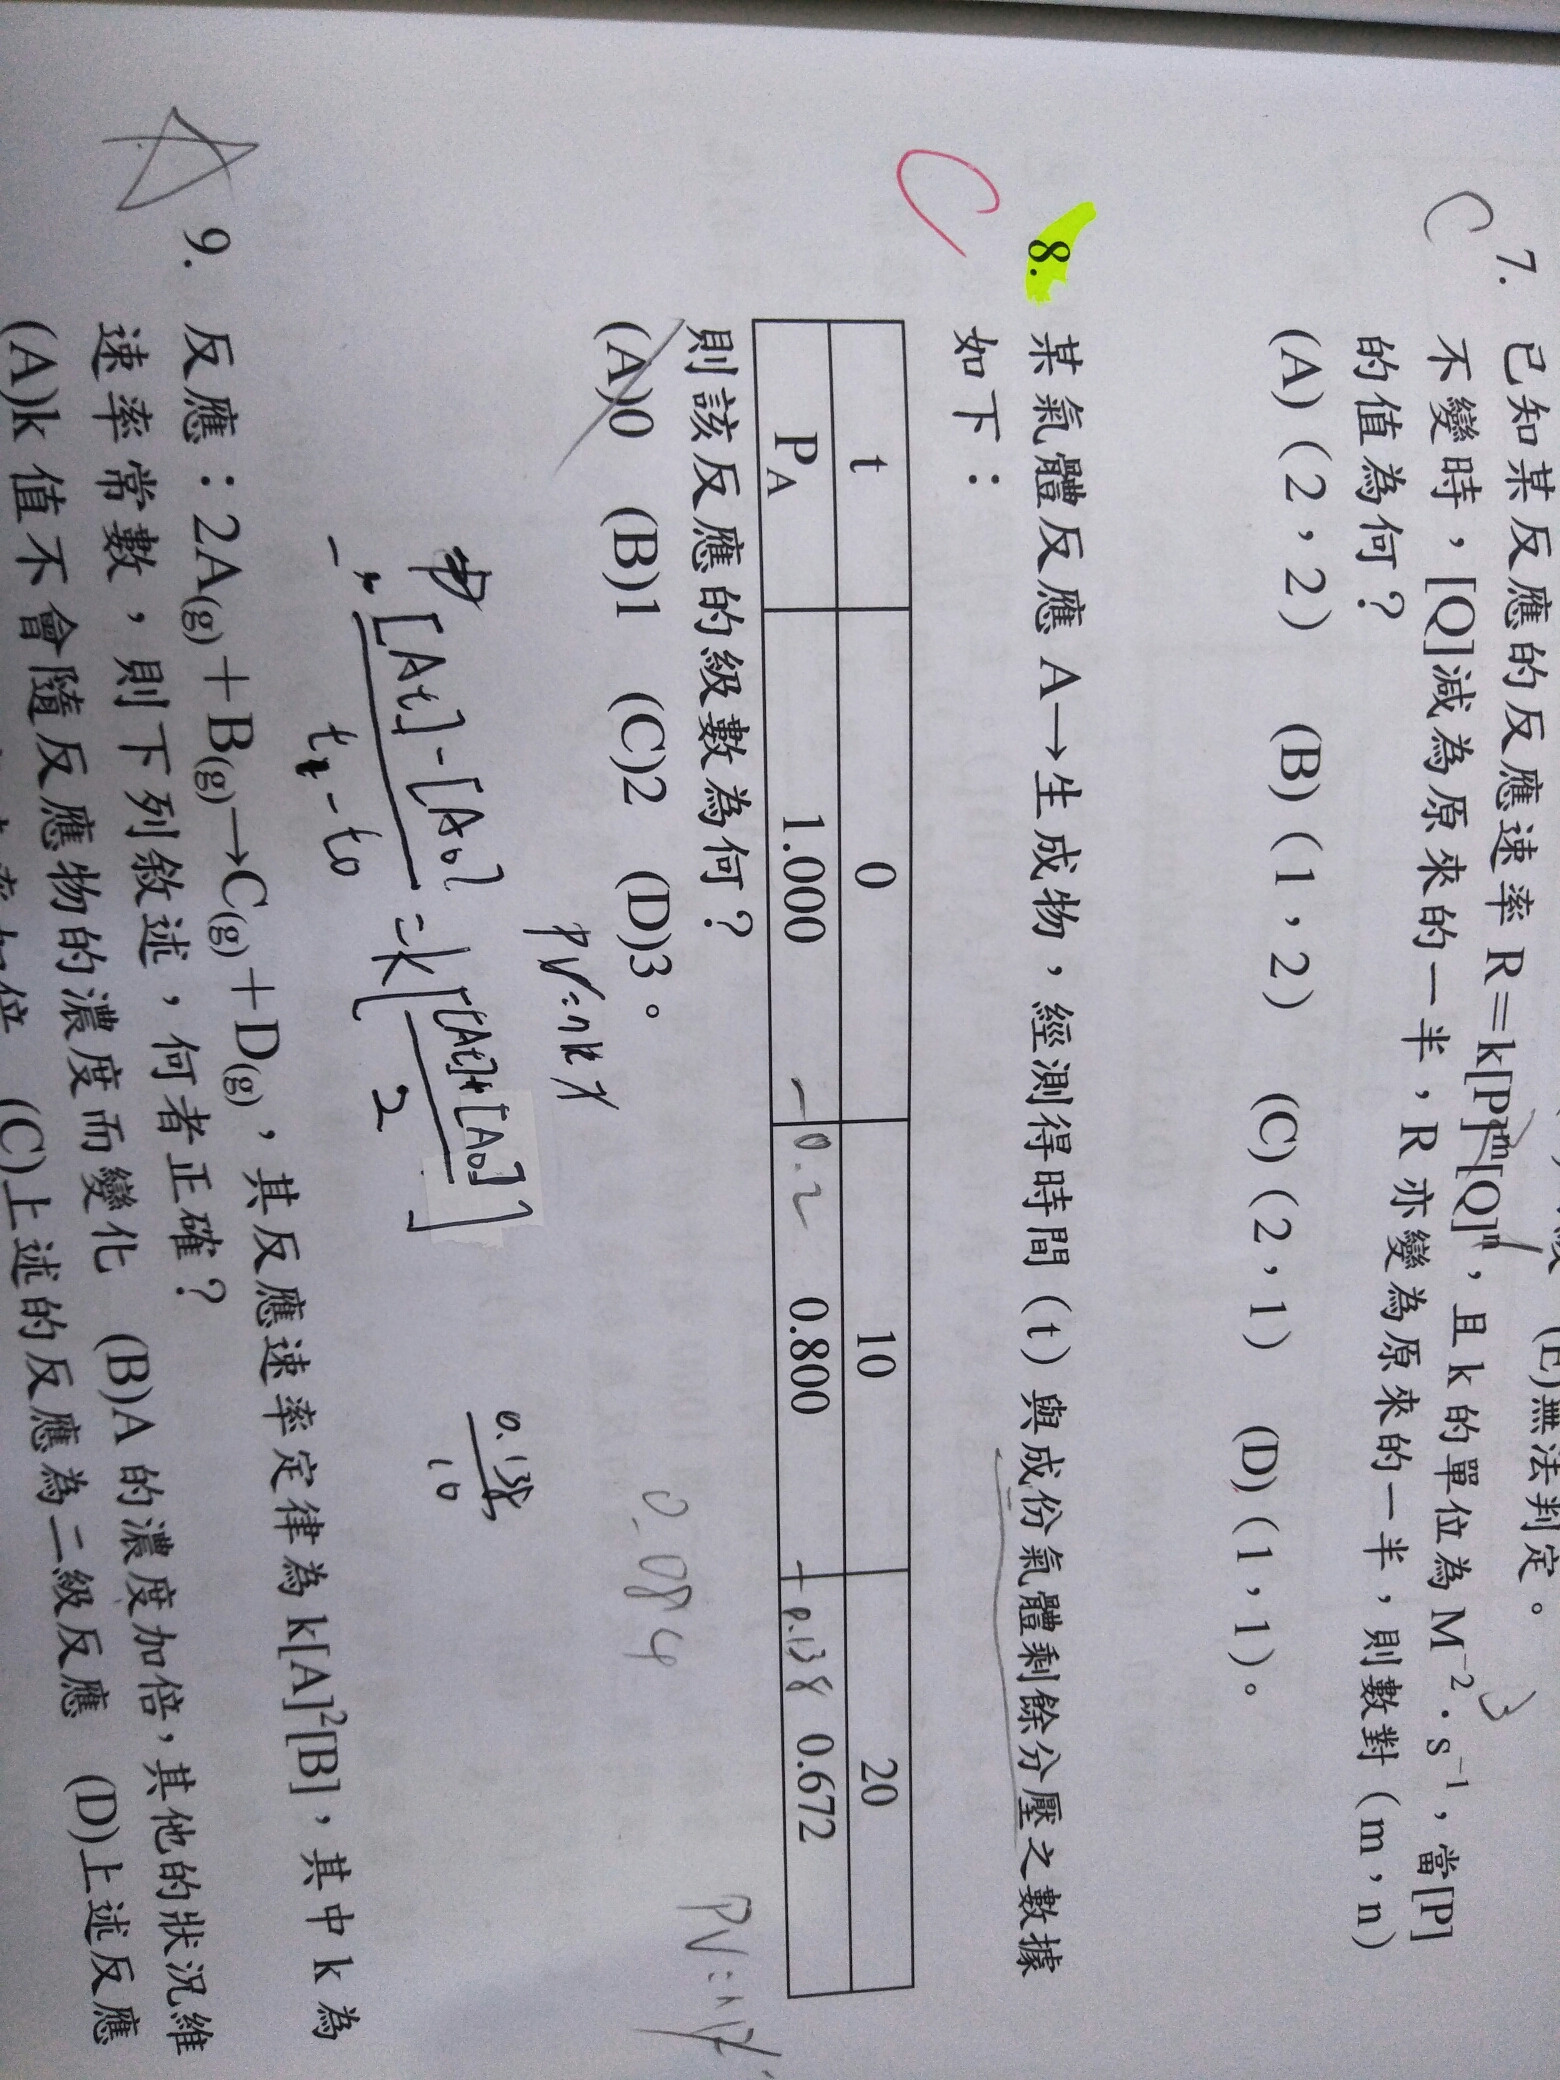 (E)無法判定。
C 7. 已知某反應的反應速率 R=k[P]ᵐ[Q]ⁿ,且 k 的單位為 M⁻²·s⁻¹,當[P] 3
不變時,[Q]減為原來的一半,R 亦變為原來的一半,則數對(m,n)
的值為何?
(A)(2,2) (B)(1,2) (C)(2,1) (D)(1,1)。
C 8. 某氣體反應 A→生成物,經測得時間(t)與成份氣體剩餘分壓之數據
如下:
t 0 10 20
P_A 1.000 -0.2 0.800 0.138 0.672
則該反應的級數為何?
(A)0 (B)1 (C)2 (D)3。
0.084
PV=n
[At]-[A0]
t-t0
=k[[At]+[A0]
2]
0.138
10
9. 反應:2A(g)+B(g)→C(g)+D(g),其反應速率定律為 k[A]²[B],其中 k 為
速率常數,則下列敘述,何者正確?
(A)k 值不會隨反應物的濃度而變化 (B)A 的濃度加倍,其他的狀況維
(C)上述的反應為二級反應 (D)上述反應